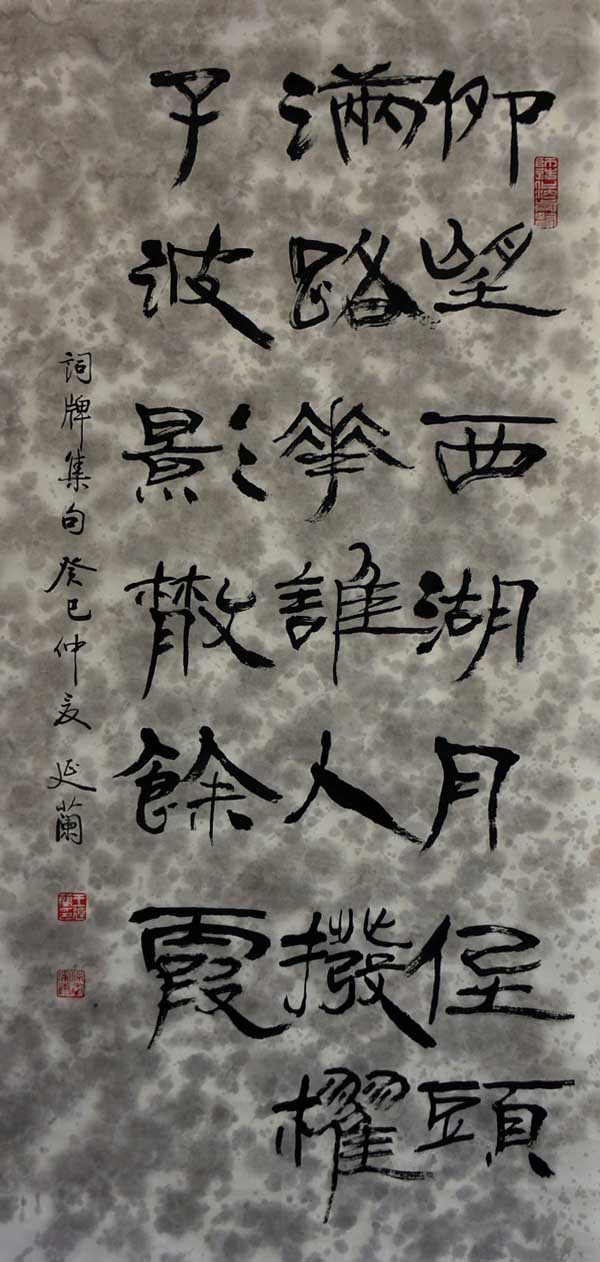 仰望西湖月頭
滿路花誰人撥櫂
子波影散餘霞
詞牌集句癸巳仲夏 延蘭